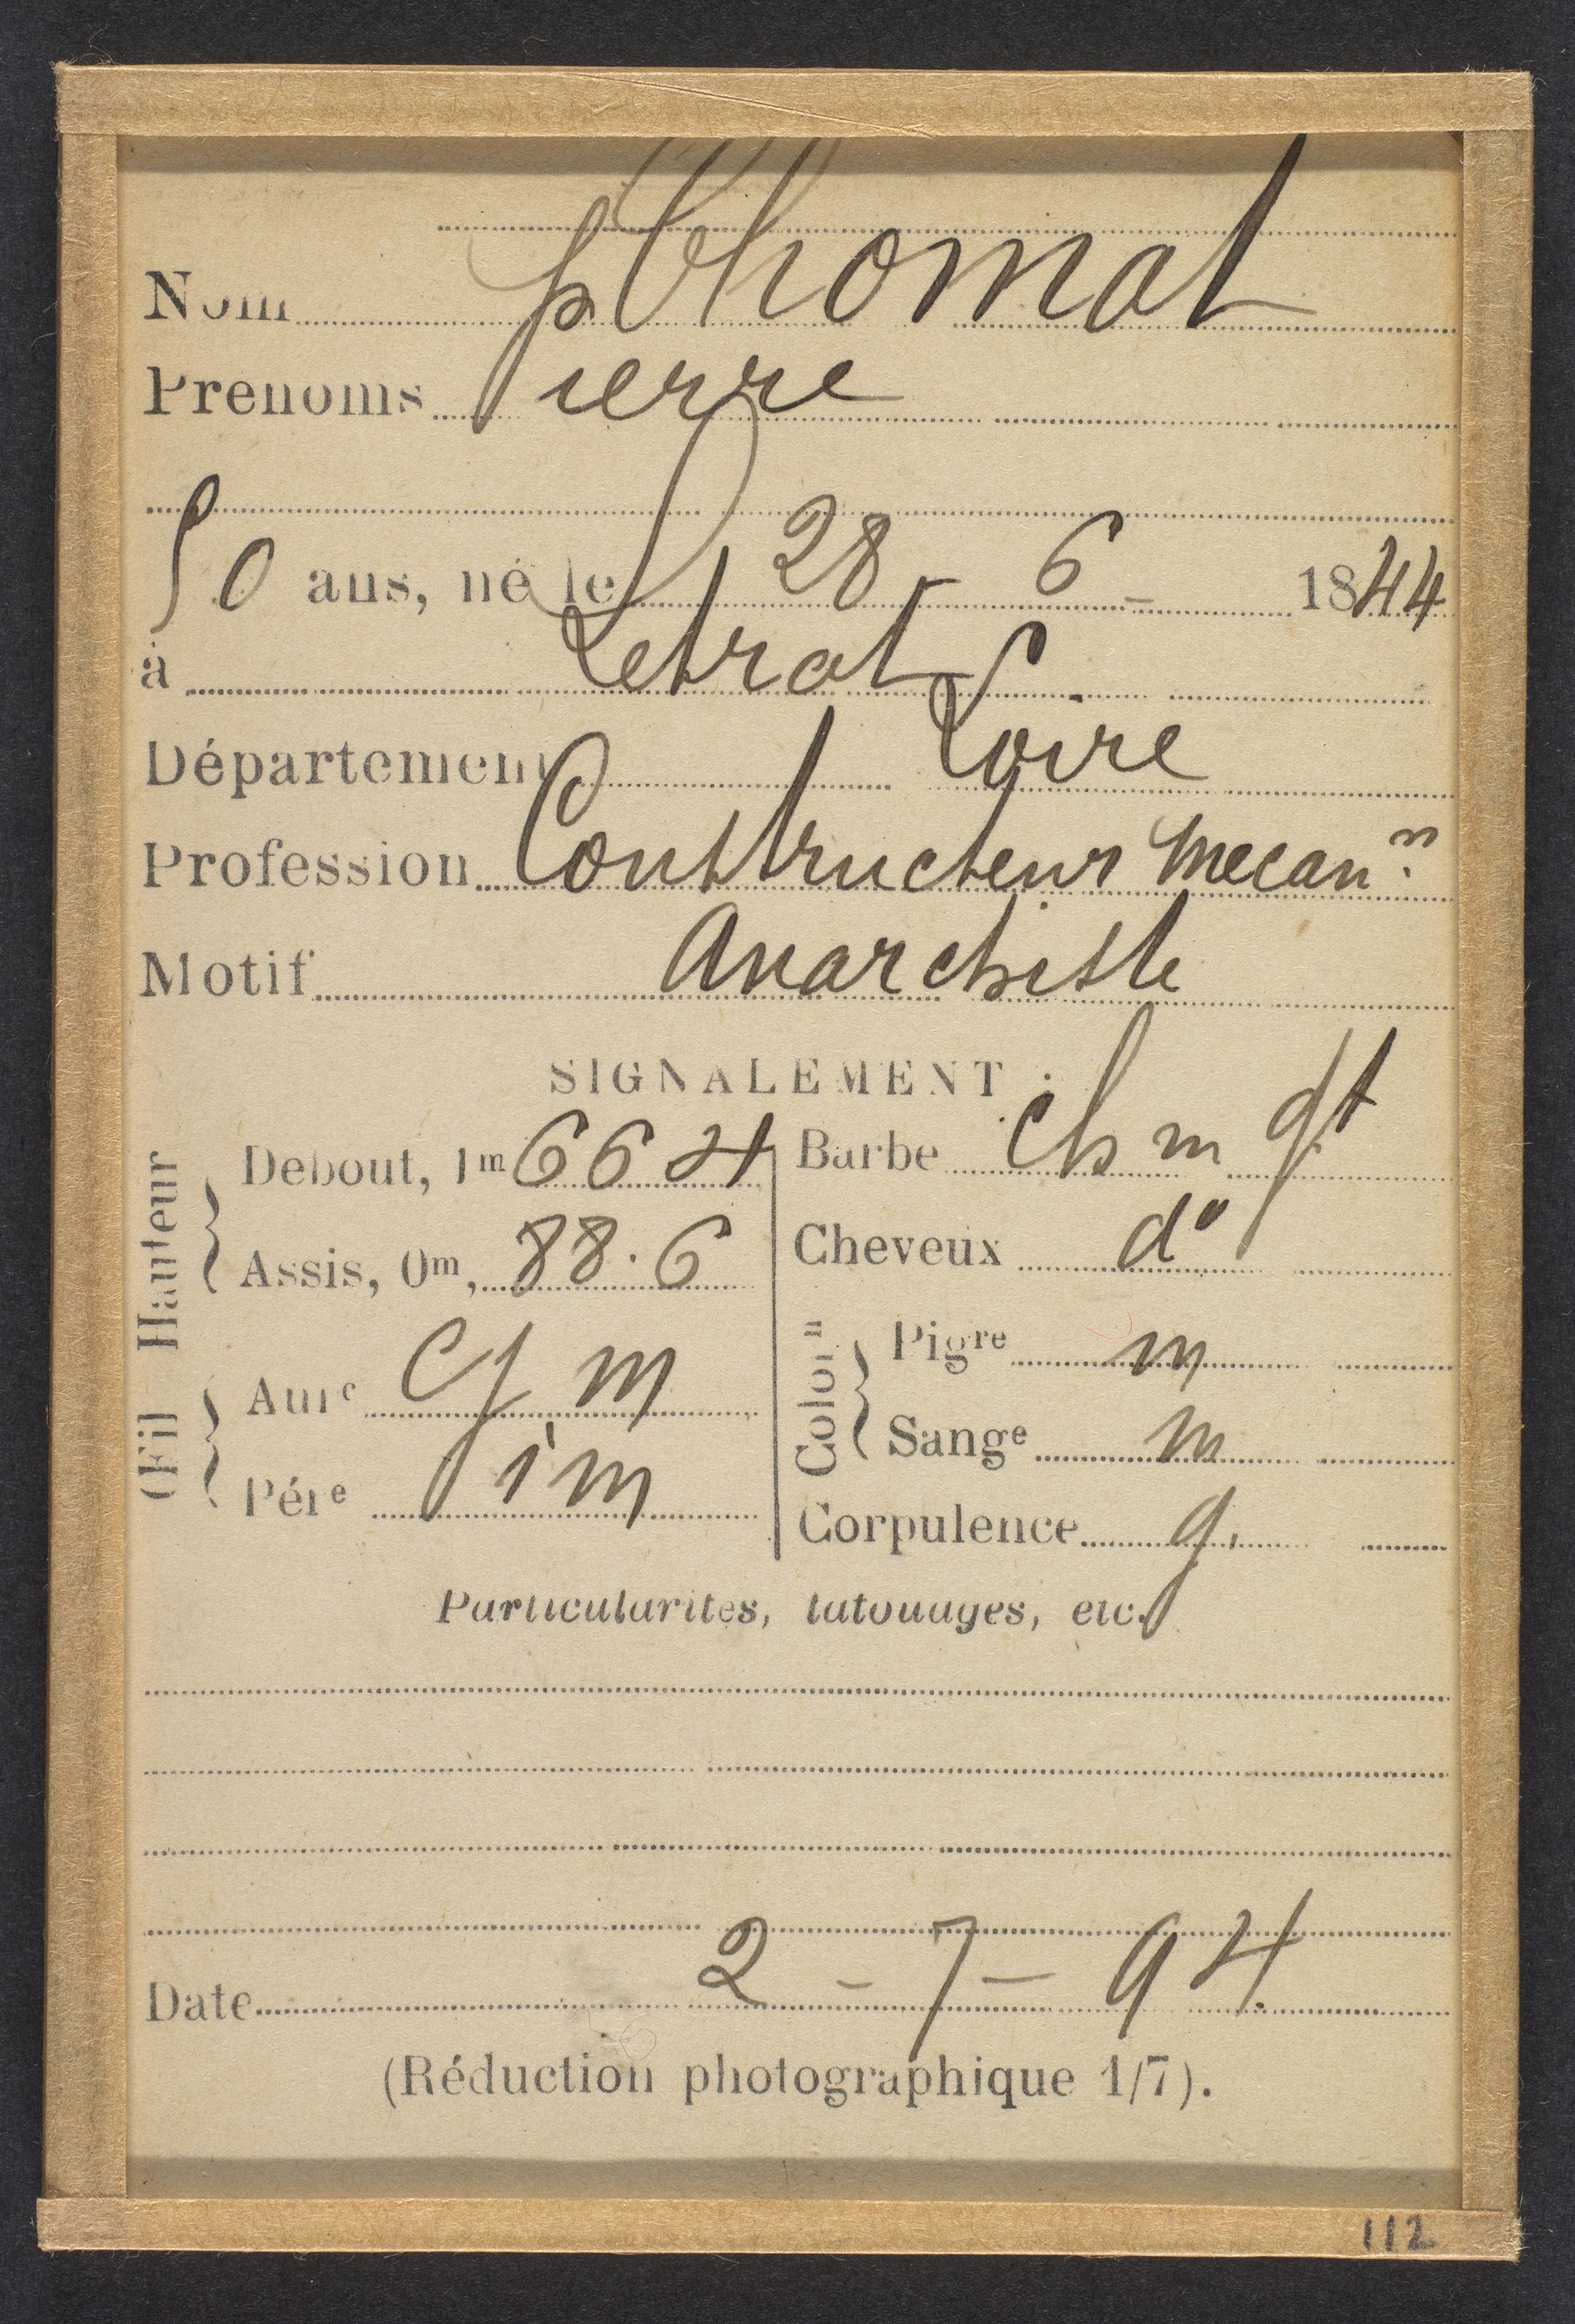 Nom Chomat
Prénoms Pierre
50 ans, né le 28 - 6 - 1844
à Letrat
Département Loire
Profession Constructeur Mecan.n
Motif Anarchiste
SIGNALEMENT :
Hauteur
Debout, 1m 66 4
Assis, 0m, 88.6
(Fil
Aure cf m
Pére j i m
Barbe ch m gt
Cheveux do
Colon
Pigre m
Sange m
Corpulence g.
Particularités, tatouages, etc.
Date 2 - 7 - 94
(Réduction photographique 1/7).
112